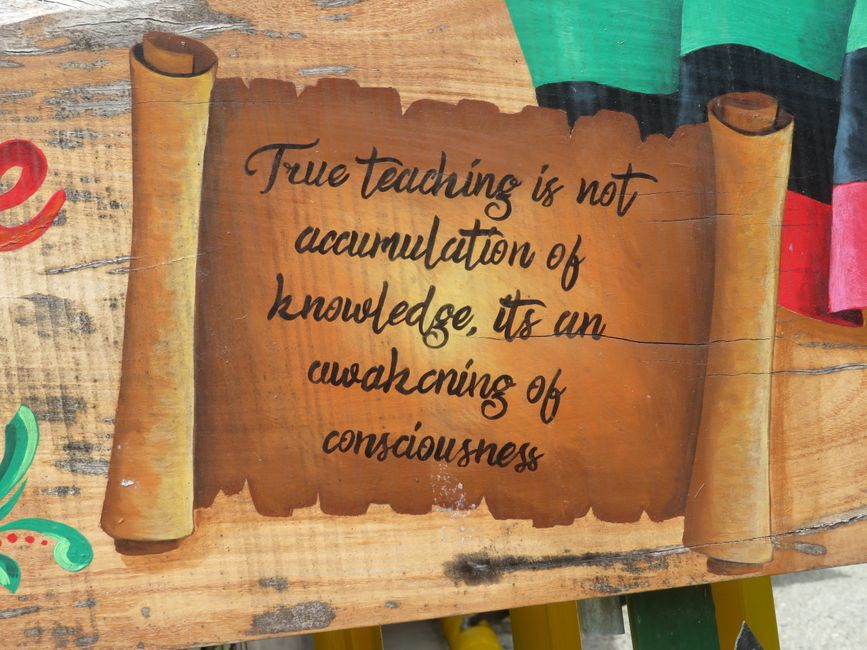 True teaching is not
accumulation of
knowledge, its an
awakening of
consciousness
e